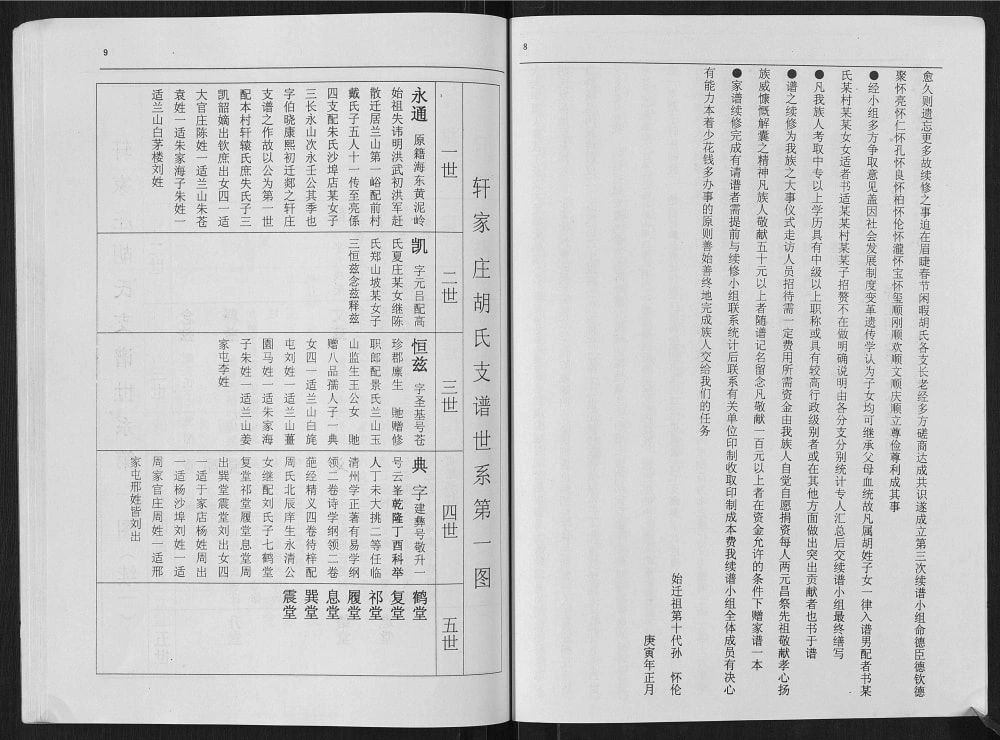 8
愈久则遗忘更多故续修之事迫在眉睫春节闲暇胡氏各支长老经多方磋商达成共识遂成立第三次续谱小组命德臣德钦德
聚怀亮怀仁怀孔怀良怀柏怀伦怀瀧怀宝怀玺顺刚顺欢顺文顺庆顺立尊俭尊利成其事
●经小组多方争取意见盖因社会发展制度变革遗传学认为子女均可继承父母血统故凡属胡姓子女一律入谱男配者书某
氏某村某某女女适者书适某某村某某子招赘不在做明确说明由各分支分别统计专人汇总后交续谱小组最终缮写
●凡我族人考取中专以上学历具有中级以上职称或具有较高行政级别者或在其他方面做出突出贡献者也书于谱
●谱之续修为我族之大事仪式走访人员招待需一定费用所需资金由我族人自觉自愿捐资每人两元昌祭先祖敬献孝心扬
族威慷慨解囊之精神凡族人敬献五十元以上者随谱记名留念凡敬献一百元以上者在资金允许的条件下赠家谱一本
●家谱续修完成有请谱者需提前与续修小组联系统计后联系有关单位印制收取印制成本费我续谱小组全体成员有决心
有能力本着少花钱多办事的原则善始善终地完成族人交给我们的任务
始迁祖第十代孙 怀伦
庚寅年正月
9
轩家庄胡氏支谱世系第一图
一世
二世
三世
四世
五世
永通 原籍海东黄泥岭
始祖失讳明洪武初洪军赶
散迁居兰山第一峪配前村
戴氏子五人十一传至亮係
四支配朱氏沙埠店某女子
三长永山次永壬公其季也
字伯晓康熙初迁郯之轩庄
支谱之作故以公为第一世
配本村轩辕氏庶失氏子三
凯韶嫡出钦庶出女四一适
大官庄陈姓一适兰山朱苍
袁姓一适朱家海子朱姓一
适兰山白茅楼刘姓
凯 字元吕配高
氏夏庄某女继陈
氏郑山坡某女子
三恒兹念兹释兹
恒兹 字圣基号苍
珍郡廪生 貤赠修
职郎配景氏兰山玉
山监生王公女 貤
赠八品孺人子一典
女四一适兰山白旄
屯刘姓一适兰山薑
園马姓一适朱家海
子朱姓一适兰山姜
家屯李姓
典 字建彝号敬升一
号云峯乾隆丁酉科举
人丁未大挑二等任临
清州学正著有易学纲
领二卷诗学纲领二卷
葩经精义四卷待梓配
周氏北辰庠生永清公
女继配刘氏子七鹤堂
复堂祁堂履堂息堂周
出巽堂震堂刘出女四
一适于家店杨姓周出
一适杨沙埠刘姓一适
周家官庄周姓一适邢
家屯邢姓皆刘出
鹤堂
复堂
祁堂
履堂
息堂
巽堂
震堂